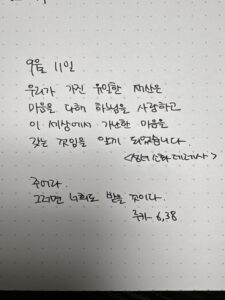 9월 11일
우리가 가진 유일한 재산은
마음을 다해 하느님을 사랑하고
이 세상에서 가난한 마음을
갖는 것임을 알게 되었습니다.
<성녀 소화 데레사>
주어라.
그러면 너희도 받을 것이다.
루카 6,38